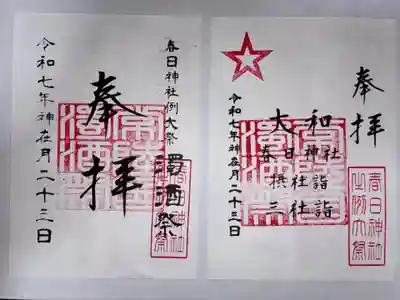 奉拝
大和
春日神社
摂社詣
三社詣
令和七年神在月二十三日
春日神社
之例大祭
春日神社例大祭
酒祭
奉拝
令和七年神在月二十三日
春日神社